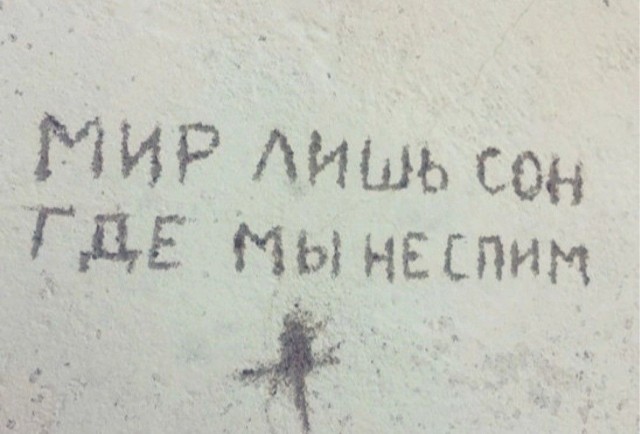 МИР ЛИШЬ СОН
ГДЕ МЫ НЕ СПИМ